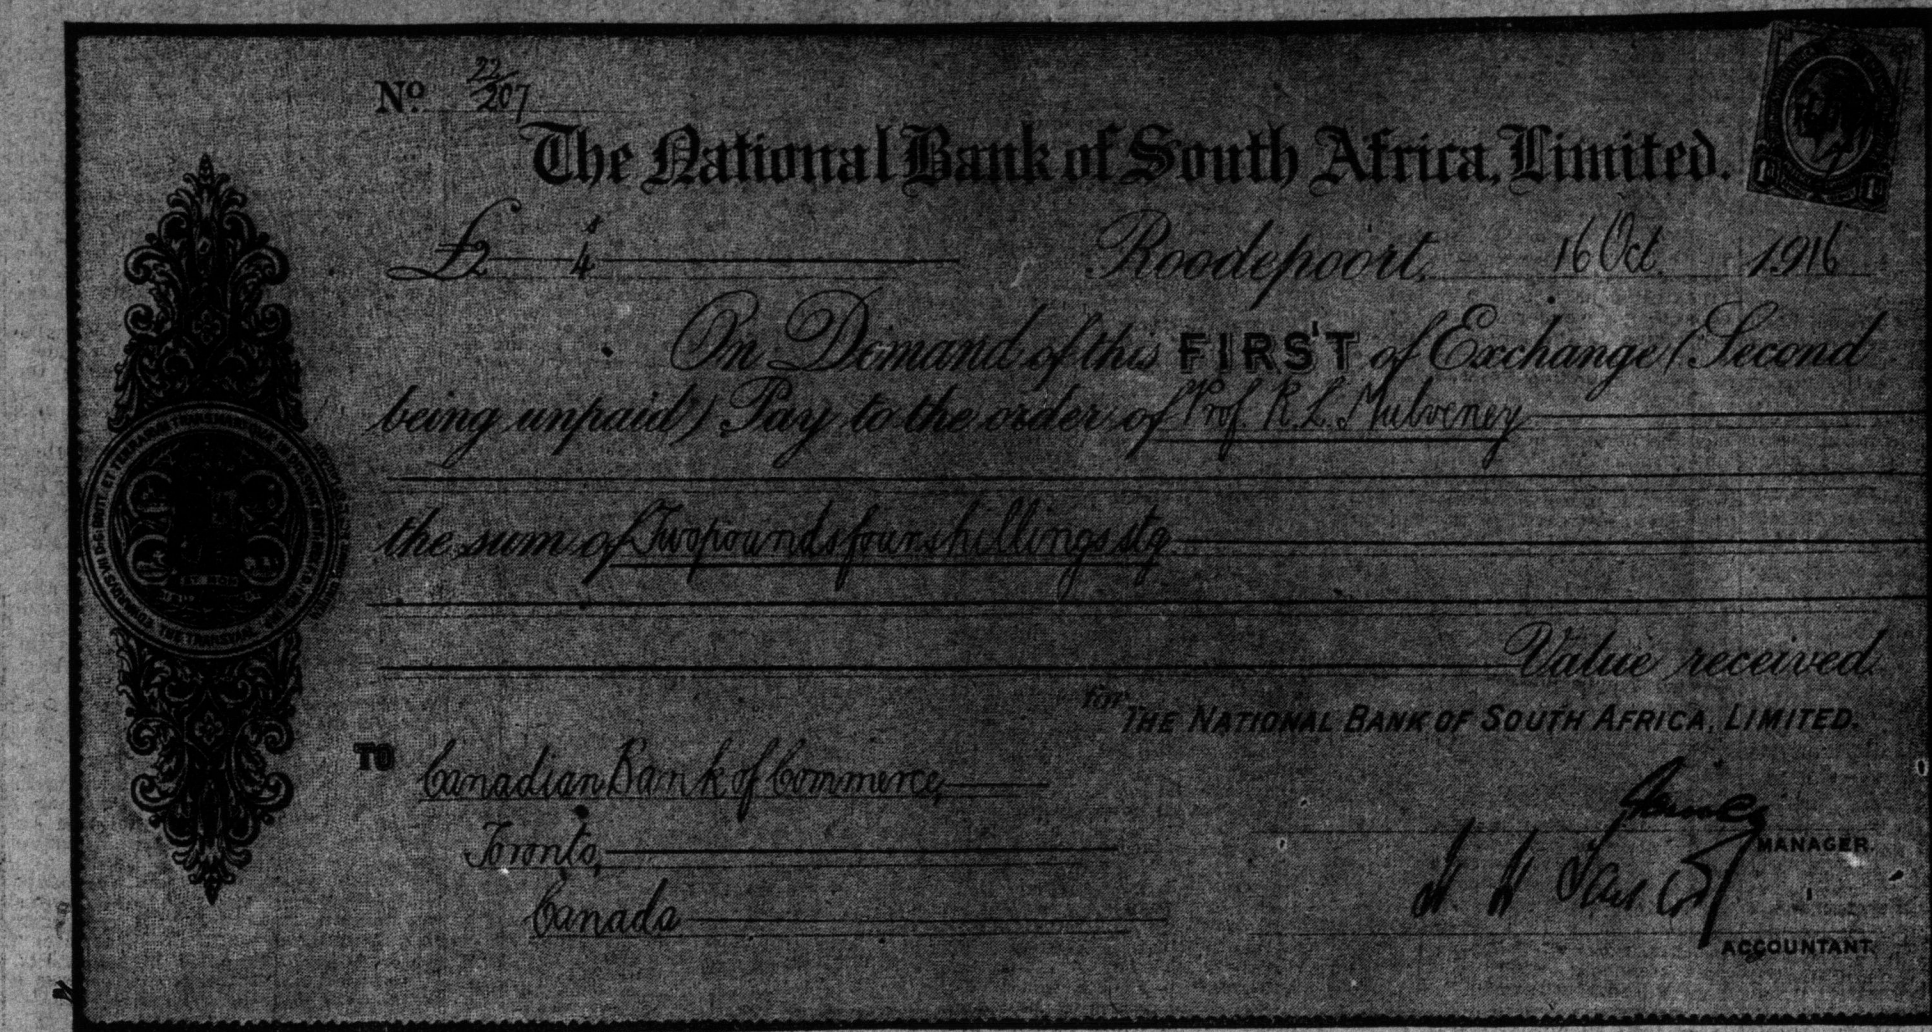 No. 22/207
The National Bank of South Africa, Limited.
£2 4s Roodepoort, 16 Oct 1916
On Demand of this FIRST of Exchange (Second
being unpaid) Pay to the order of Prof. R. L. Mulveney
the sum of Two pounds four shillings stg
Value received
for THE NATIONAL BANK OF SOUTH AFRICA, LIMITED.
TO Canadian Bank of Commerce,
Toronto,
Canada
MANAGER.
ACCOUNTANT.